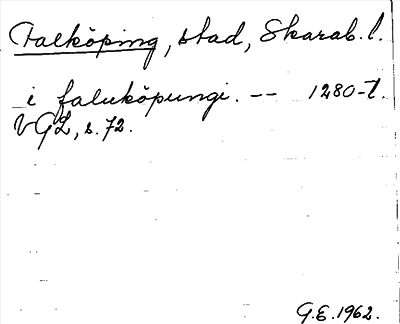 Falköping, stad, Skarab. l.
i faluköpungi. -- 1280-t.
VGL, s. 72.
G.E. 1962.